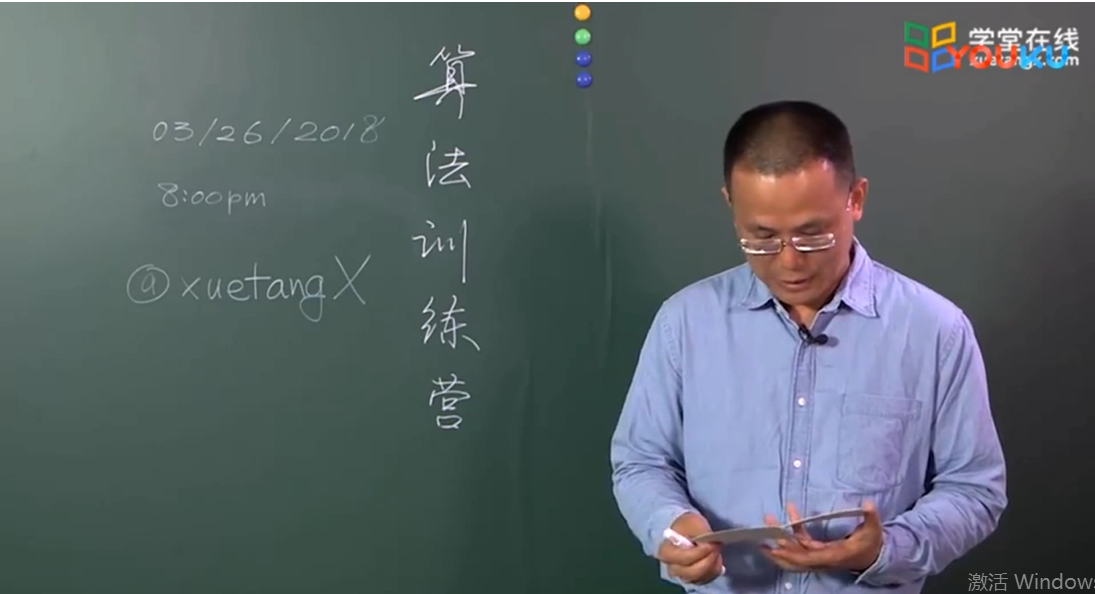 03/26/2018
8:00pm
@xuetangX
算法训练营
学堂在线
xuetangx.com
YOUKU
激活 Windows